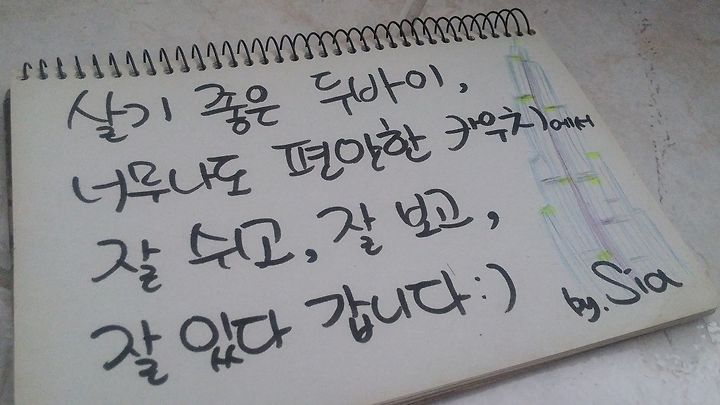 살기 좋은 두바이,
너무나도 편안한 카우치에서
잘 쉬고, 잘 보고,
잘 있다 갑니다:)
by. Sia